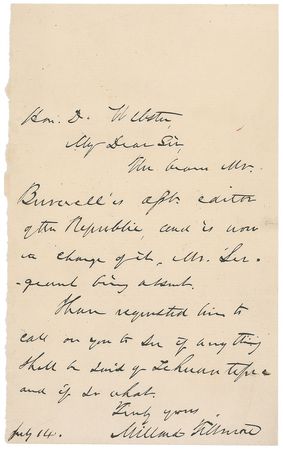 Hon. D. Webster,
My Dear Sir,
The bearer Mr.
Burwell is asst. editor
of the Republic, and is now
in charge of it, Mr. Ser-
-geant being absent.
I have requested him to
call on you to see if any thing
shall be said of Tehuantepec
and if so what.
Truly yours,
July 14. Millard Fillmore